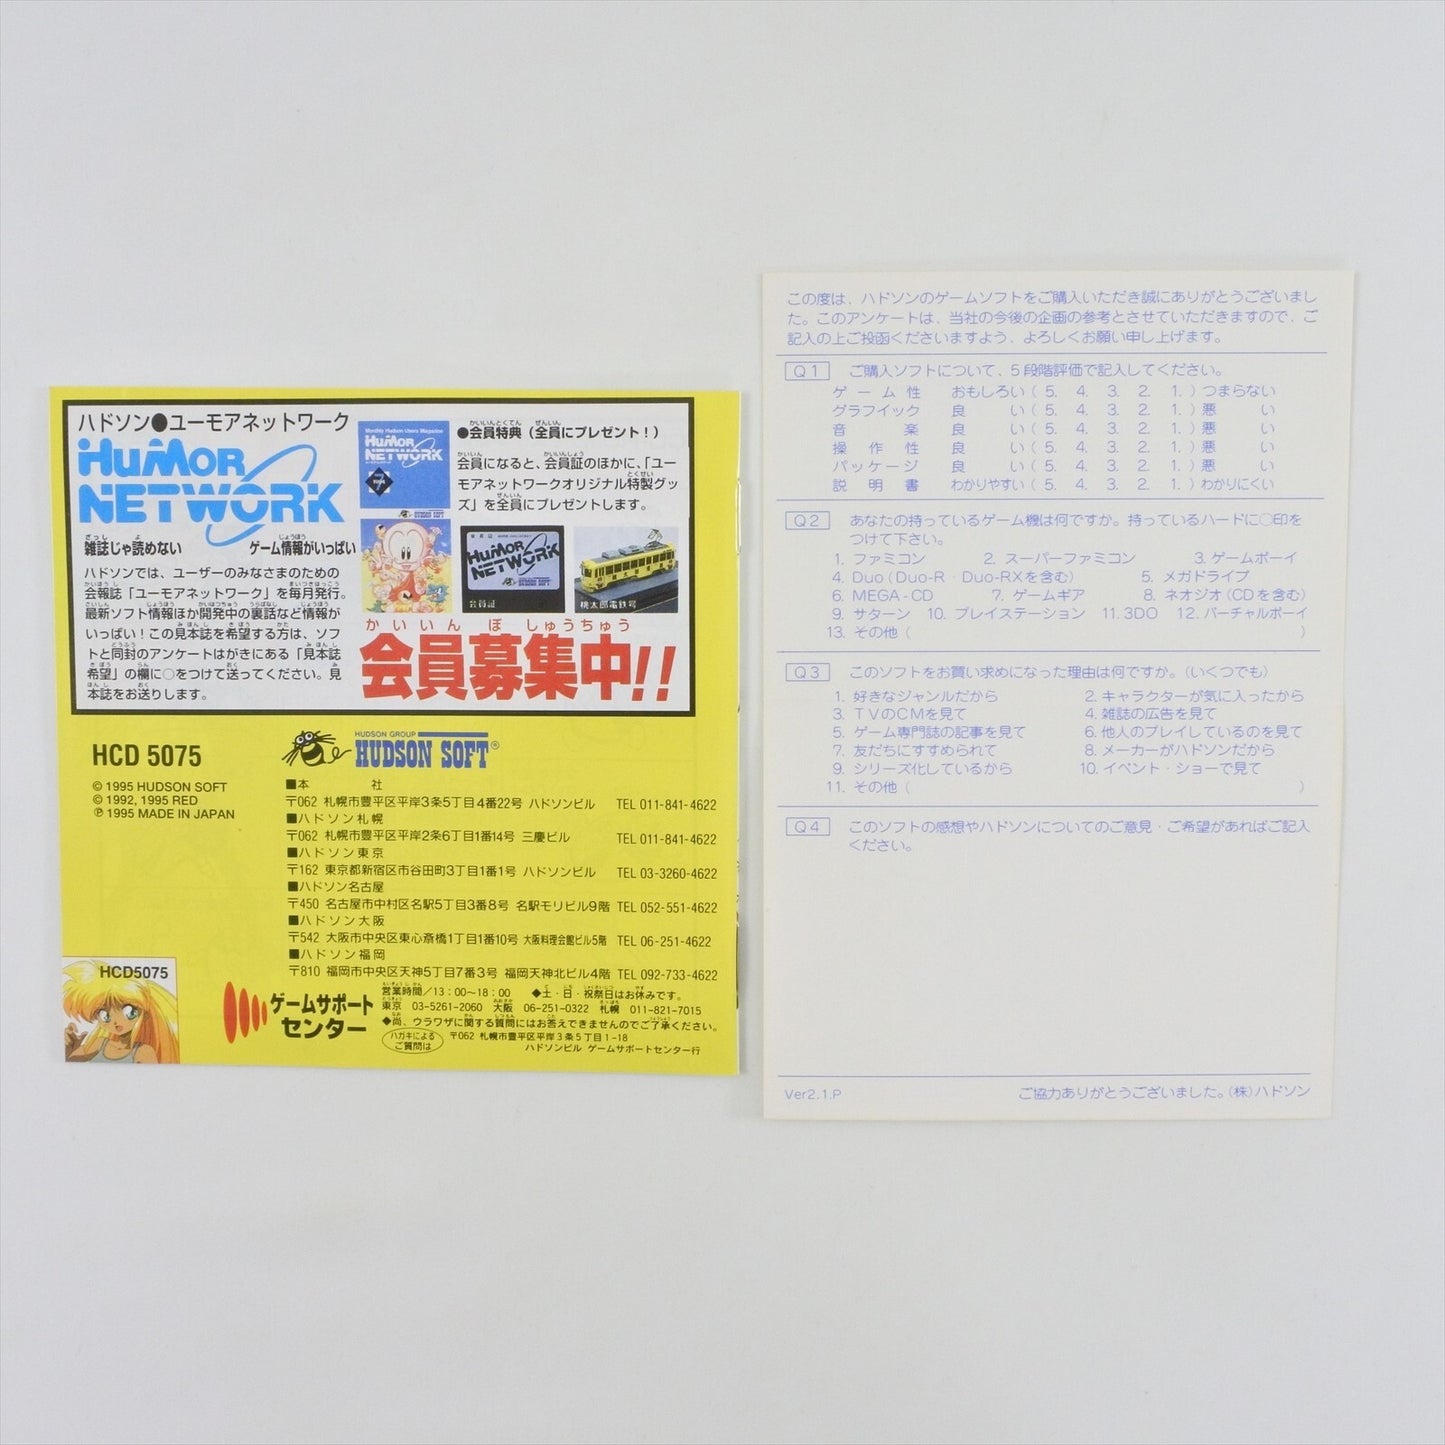 ハドソン●ユーモアネットワーク
HuMOR
NETWORK
雑誌じゃ読めない ゲーム情報がいっぱい
ハドソンでは、ユーザーのみなさまのための
会報誌「ユーモアネットワーク」を毎月発行。
最新ソフト情報ほか開発中の裏話など情報が
いっぱい！この見本誌を希望する方は、ソフ
トと同封のアンケートはがきにある「見本誌
希望」の欄に○をつけて送ってください。見
本誌をお送りします。
Monthly Hudson Users Magazine
HuMOR
NETWORK
HUDSON SOFT
●会員特典（全員にプレゼント！）
会員になると、会員証のほかに、「ユー
モアネットワークオリジナル特製グッ
ズ」を全員にプレゼントします。
HuMOR
NETWORK
会員証
桃太郎電鉄号
かいいん ぼ しゅうちゅう
会員募集中!!
HCD 5075
© 1995 HUDSON SOFT
© 1992, 1995 RED
℗ 1995 MADE IN JAPAN
HUDSON GROUP
HUDSON SOFT®
■本 社
〒062 札幌市豊平区平岸3条5丁目4番22号 ハドソンビル TEL 011-841-4622
■ハドソン札幌
〒062 札幌市豊平区平岸2条6丁目1番14号 三慶ビル TEL 011-841-4622
■ハドソン東京
〒162 東京都新宿区市谷田町3丁目1番1号 ハドソンビル TEL 03-3260-4622
■ハドソン名古屋
〒450 名古屋市中村区名駅5丁目3番8号 名駅モリビル9階 TEL 052-551-4622
■ハドソン大阪
〒542 大阪市中央区東心斎橋1丁目1番10号 大阪料理会館ビル5階 TEL 06-251-4622
■ハドソン福岡
〒810 福岡市中央区天神5丁目7番3号 福岡天神北ビル4階 TEL 092-733-4622
HCD5075
ゲームサポート
センター
営業時間／13：00〜18：00 ◆土・日・祝祭日はお休みです。
東京 03-5261-2060 大阪 06-251-0322 札幌 011-821-7015
◆尚、ウラワザに関する質問にはお答えできませんのでご了承ください。
ハガキによる
ご質問は
〒062 札幌市豊平区平岸3条5丁目1-18
ハドソンビル ゲームサポートセンター行
この度は、ハドソンのゲームソフトをご購入いただき誠にありがとうございまし
た。このアンケートは、当社の今後の企画の参考とさせていただきますので、ご
記入の上ご投函くださいますよう、よろしくお願い申し上げます。
Q1 ご購入ソフトについて、5段階評価で記入してください。
ゲーム性 おもしろい（ 5. 4. 3. 2. 1. ）つまらない
グラフイック 良い（ 5. 4. 3. 2. 1. ）悪い
音楽 良い（ 5. 4. 3. 2. 1. ）悪い
操作性 良い（ 5. 4. 3. 2. 1. ）悪い
パッケージ 良い（ 5. 4. 3. 2. 1. ）悪い
説明書 わかりやすい（ 5. 4. 3. 2. 1. ）わかりにくい
Q2 あなたの持っているゲーム機は何ですか。持っているハードに○印を
つけて下さい。
1. ファミコン 2. スーパーファミコン 3. ゲームボーイ
4. Duo（Duo-R・Duo-RXを含む） 5. メガドライブ
6. MEGA-CD 7. ゲームギア 8. ネオジオ（CDを含む）
9. サターン 10. プレイステーション 11. 3DO 12. バーチャルボーイ
13. その他（ ）
Q3 このソフトをお買い求めになった理由は何ですか。（いくつでも）
1. 好きなジャンルだから 2. キャラクターが気に入ったから
3. TVのCMを見て 4. 雑誌の広告を見て
5. ゲーム専門誌の記事を見て 6. 他人のプレイしているのを見て
7. 友だちにすすめられて 8. メーカーがハドソンだから
9. シリーズ化しているから 10. イベント・ショーで見て
11. その他（ ）
Q4 このソフトの感想やハドソンについてのご意見・ご希望があればご記入
ください。
Ver2.1.P ご協力ありがとうございました。（株）ハドソン